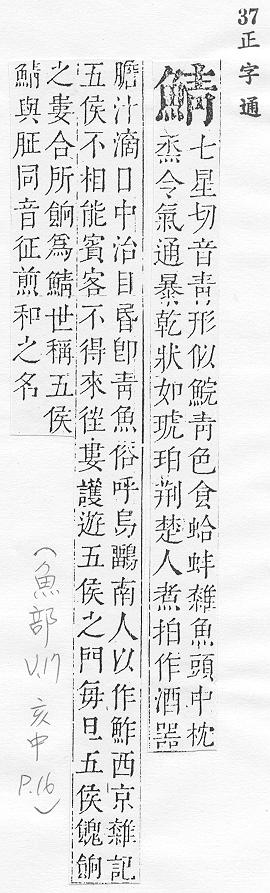 37 正字通
鯖
七星切音靑形似鯇靑色食蛤蚌雜魚頭中枕
烝令氣通暴乾狀如琥珀荆楚人煮拍作酒器
膽汁滴口中治目昏卽靑魚俗呼烏鰡南人以作鮓西京雜記
五侯不相能賓客不得來徃婁護遊五侯之門每旦五侯餽餉
之婁合所餉爲鯖世稱五侯
鯖與脏同音征煎和之名
(魚部 V.17 亥中 P.16)